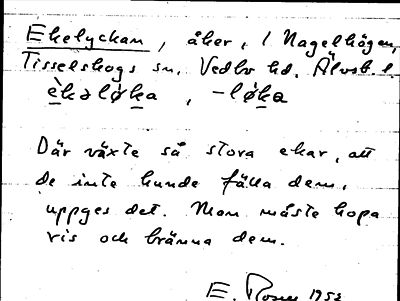 Ekelyckan, åker, i Nagelhögen,
Tisselskogs sn, Vedbo hd, Älvsb. l.
èkəløka, -løka
Där växte så stora ekar, att
de inte kunde fälla dem,
uppges det. Mon måste hopa
ris och bränna dem.
E. 1952